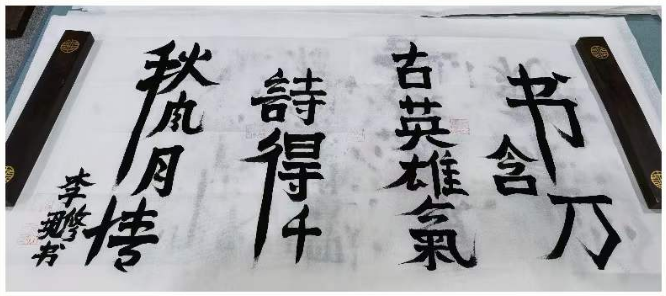 书含万
古英雄氣
詩得千
秋风月情
李修現书